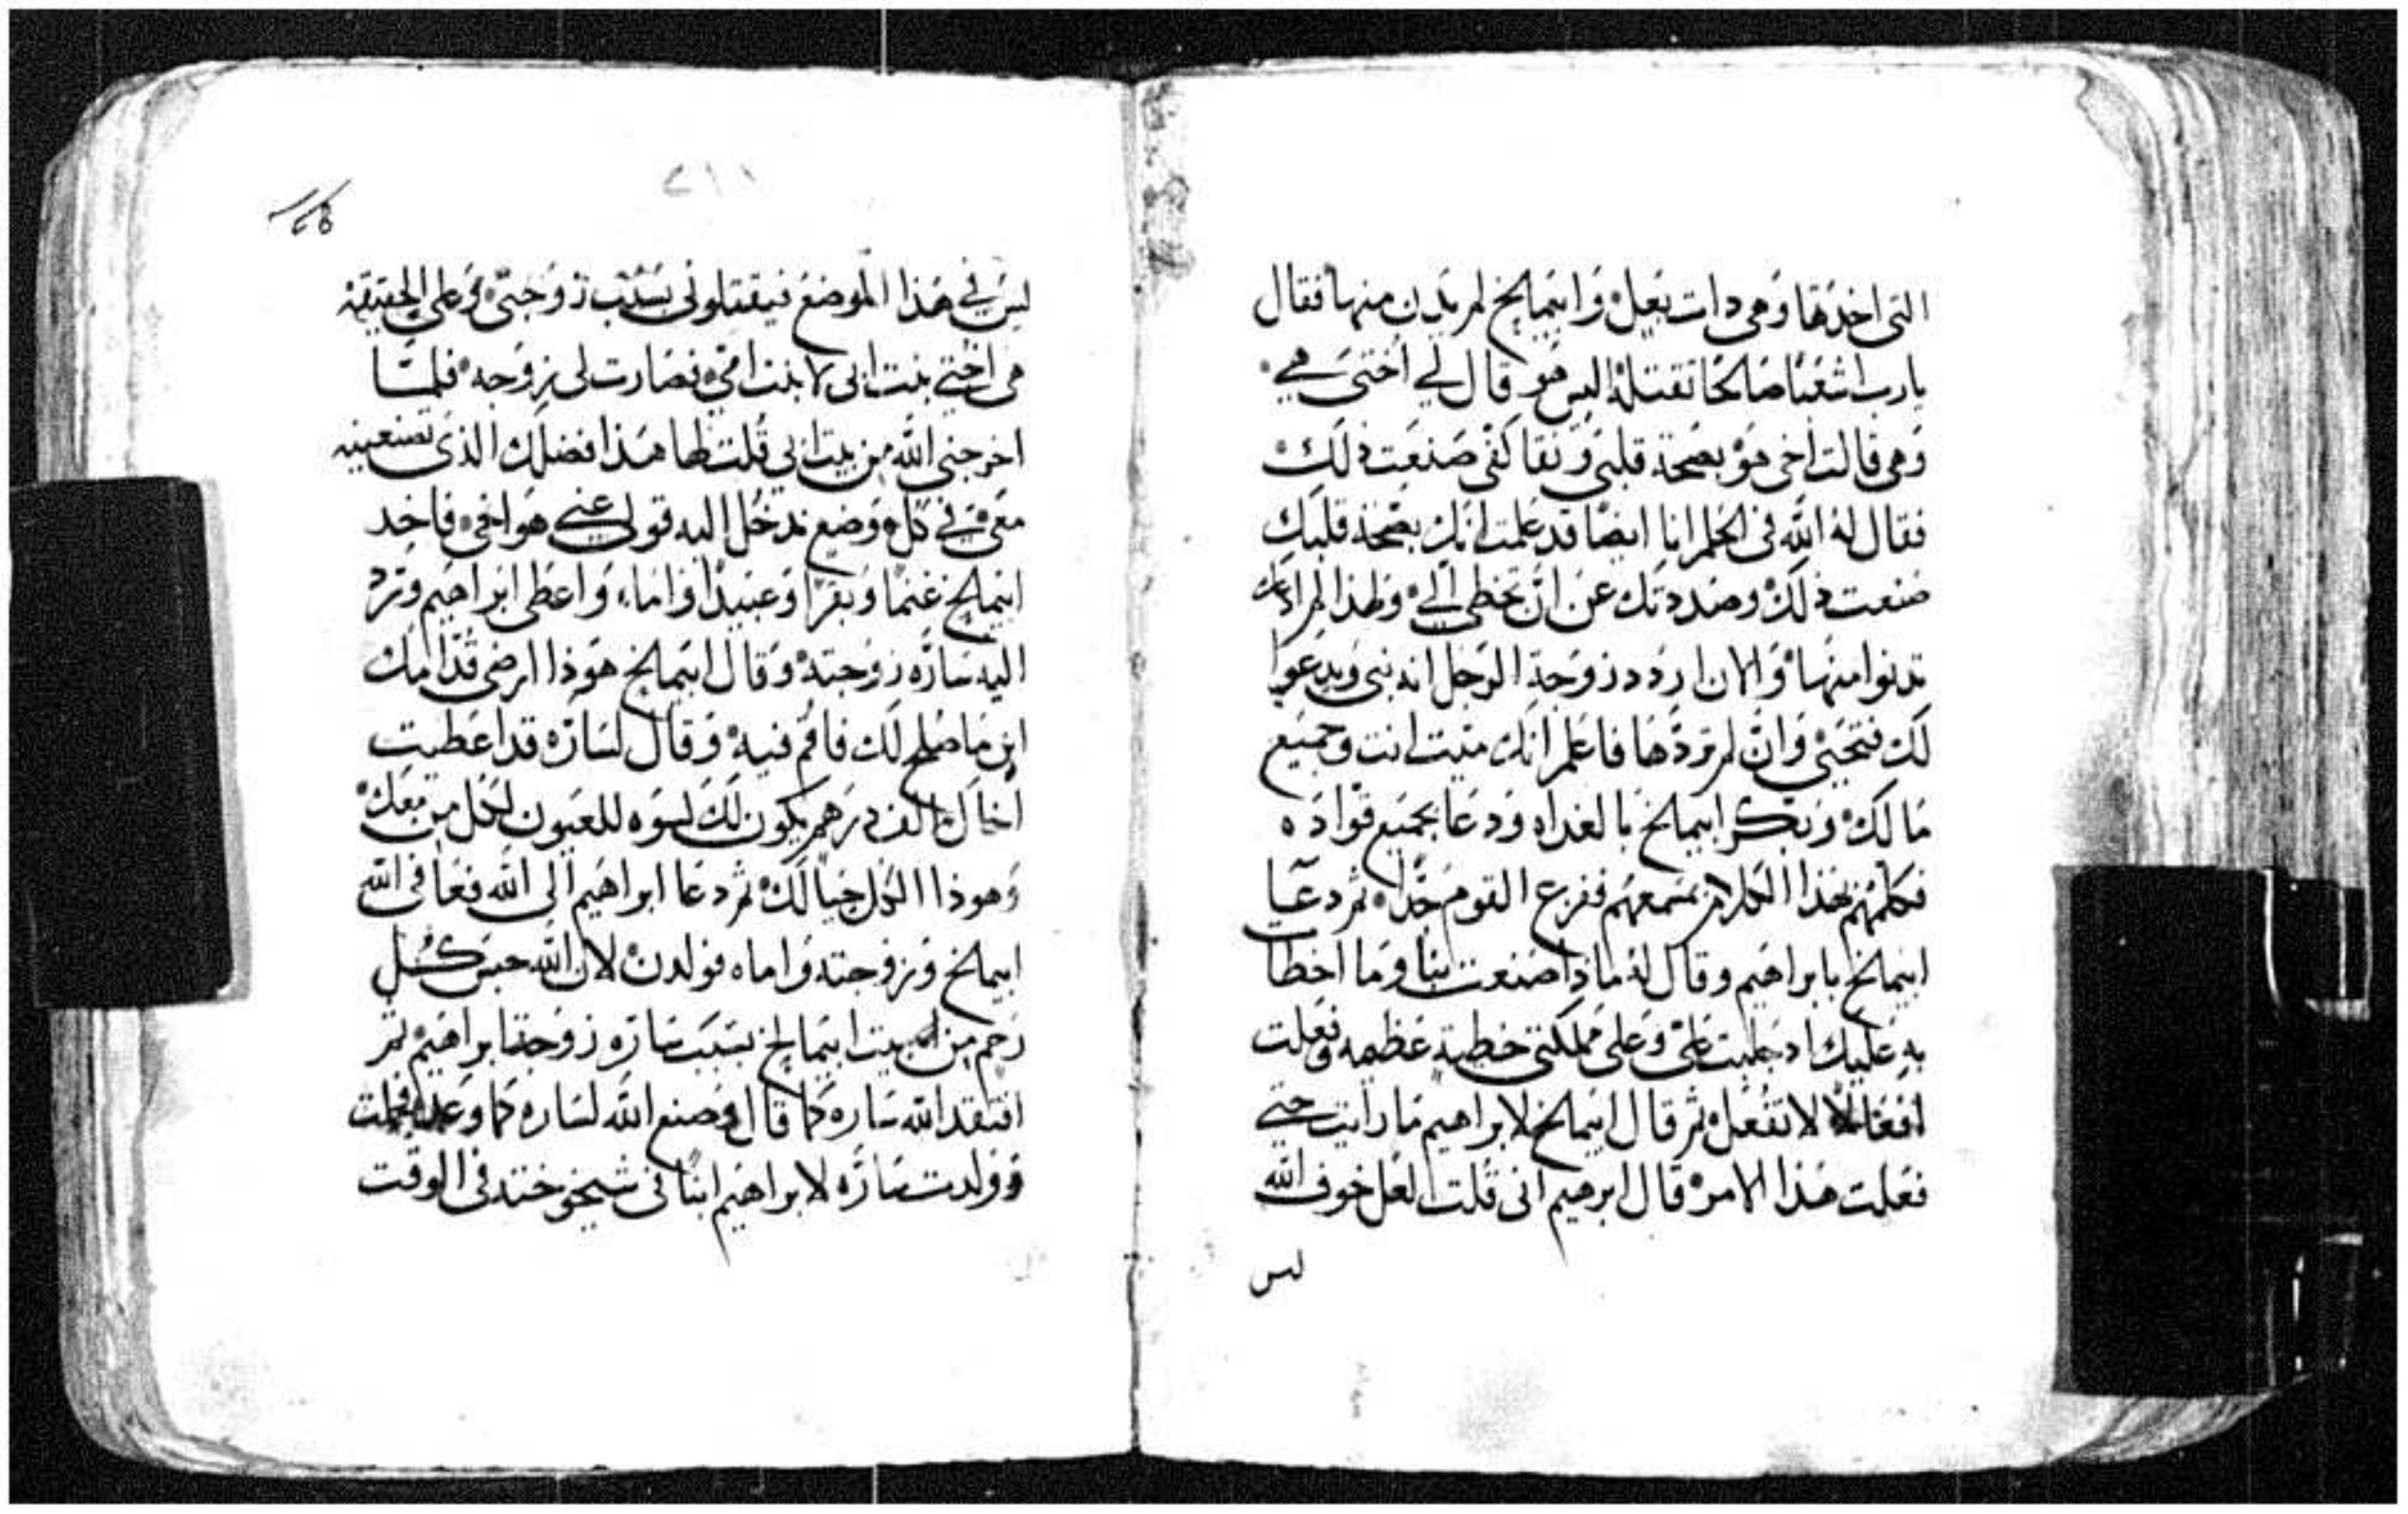 التى اخدها وهى دات بعل وابيمالخ لم يدن منها فقال
يارب اشعبا صالحا تقتله اليس هو قال لي اختى هي
وهى قالت اخى هو بصحة قلبى ونقا كفى صنعت ذلك
فقال له الله فى الحلم انا ايضا قد علمت انك بصحة قلبك
صنعت ذلك وصددتك عن ان تخطى الي ولهذا لم ادعك
تدنوا منها والان اردد زوجة الرجل انه نبى ويدعوا
لك فتحيى وان لم تردها فاعلم انك ميت انت وجميع
مالك وبكر ابيمالخ بالغداه ودعا بجميع قواده
فكلمهم بهذا الكلام بمسمعهم ففزع القوم جدا ثم دعا
ابيمالخ بابراهيم وقال له ماذا صنعت بنا وما اخطا
به عليك اد جلبت علي وعلى مملكتى خطية عظيمه وفعلت
افعالا لا تفعل ثم قال ابيمالخ لابراهيم ما رايت حتي
فعلت هذا الامر قال ابرهيم انى قلت لعل خوف الله
ليس
٢١١
ليس في هذا الموضع فيقتلونى بسبب زوجتى وعلى الحقيقه
هى اختي بنت ابى لا بنت امى فصارت لى زوجه فلما
اخرجنى الله من بيت ابى قلت لها هذا فضلك الذى تصنعينه
معى في كل موضع ندخل اليه قولى عني هو اخى فاخد
ابيمالخ غنما وبقرا وعبيدا واماء واعطى ابراهيم ورد
اليه ساره زوجته وقال ابيمالخ هوذا ارضى قدامك
اين ما صلح لك فاقم فيه وقال لساره قد اعطيت
اخاك الف درهم يكون لك لسوه للعيون لكل من معك
وهوذا الكل حيالك ثم دعا ابراهيم الى الله فعافى الله
ابيمالخ وزوجته واماه فولدن لان الله حبس كل
رحم من بيت ابيمالخ بسبب ساره زوجة ابراهيم ثم
افتقد الله ساره كما قال وصنع الله لساره كما وعدها فحملت
وولدت ساره لابراهيم ابنا فى شيخوخته فى الوقت